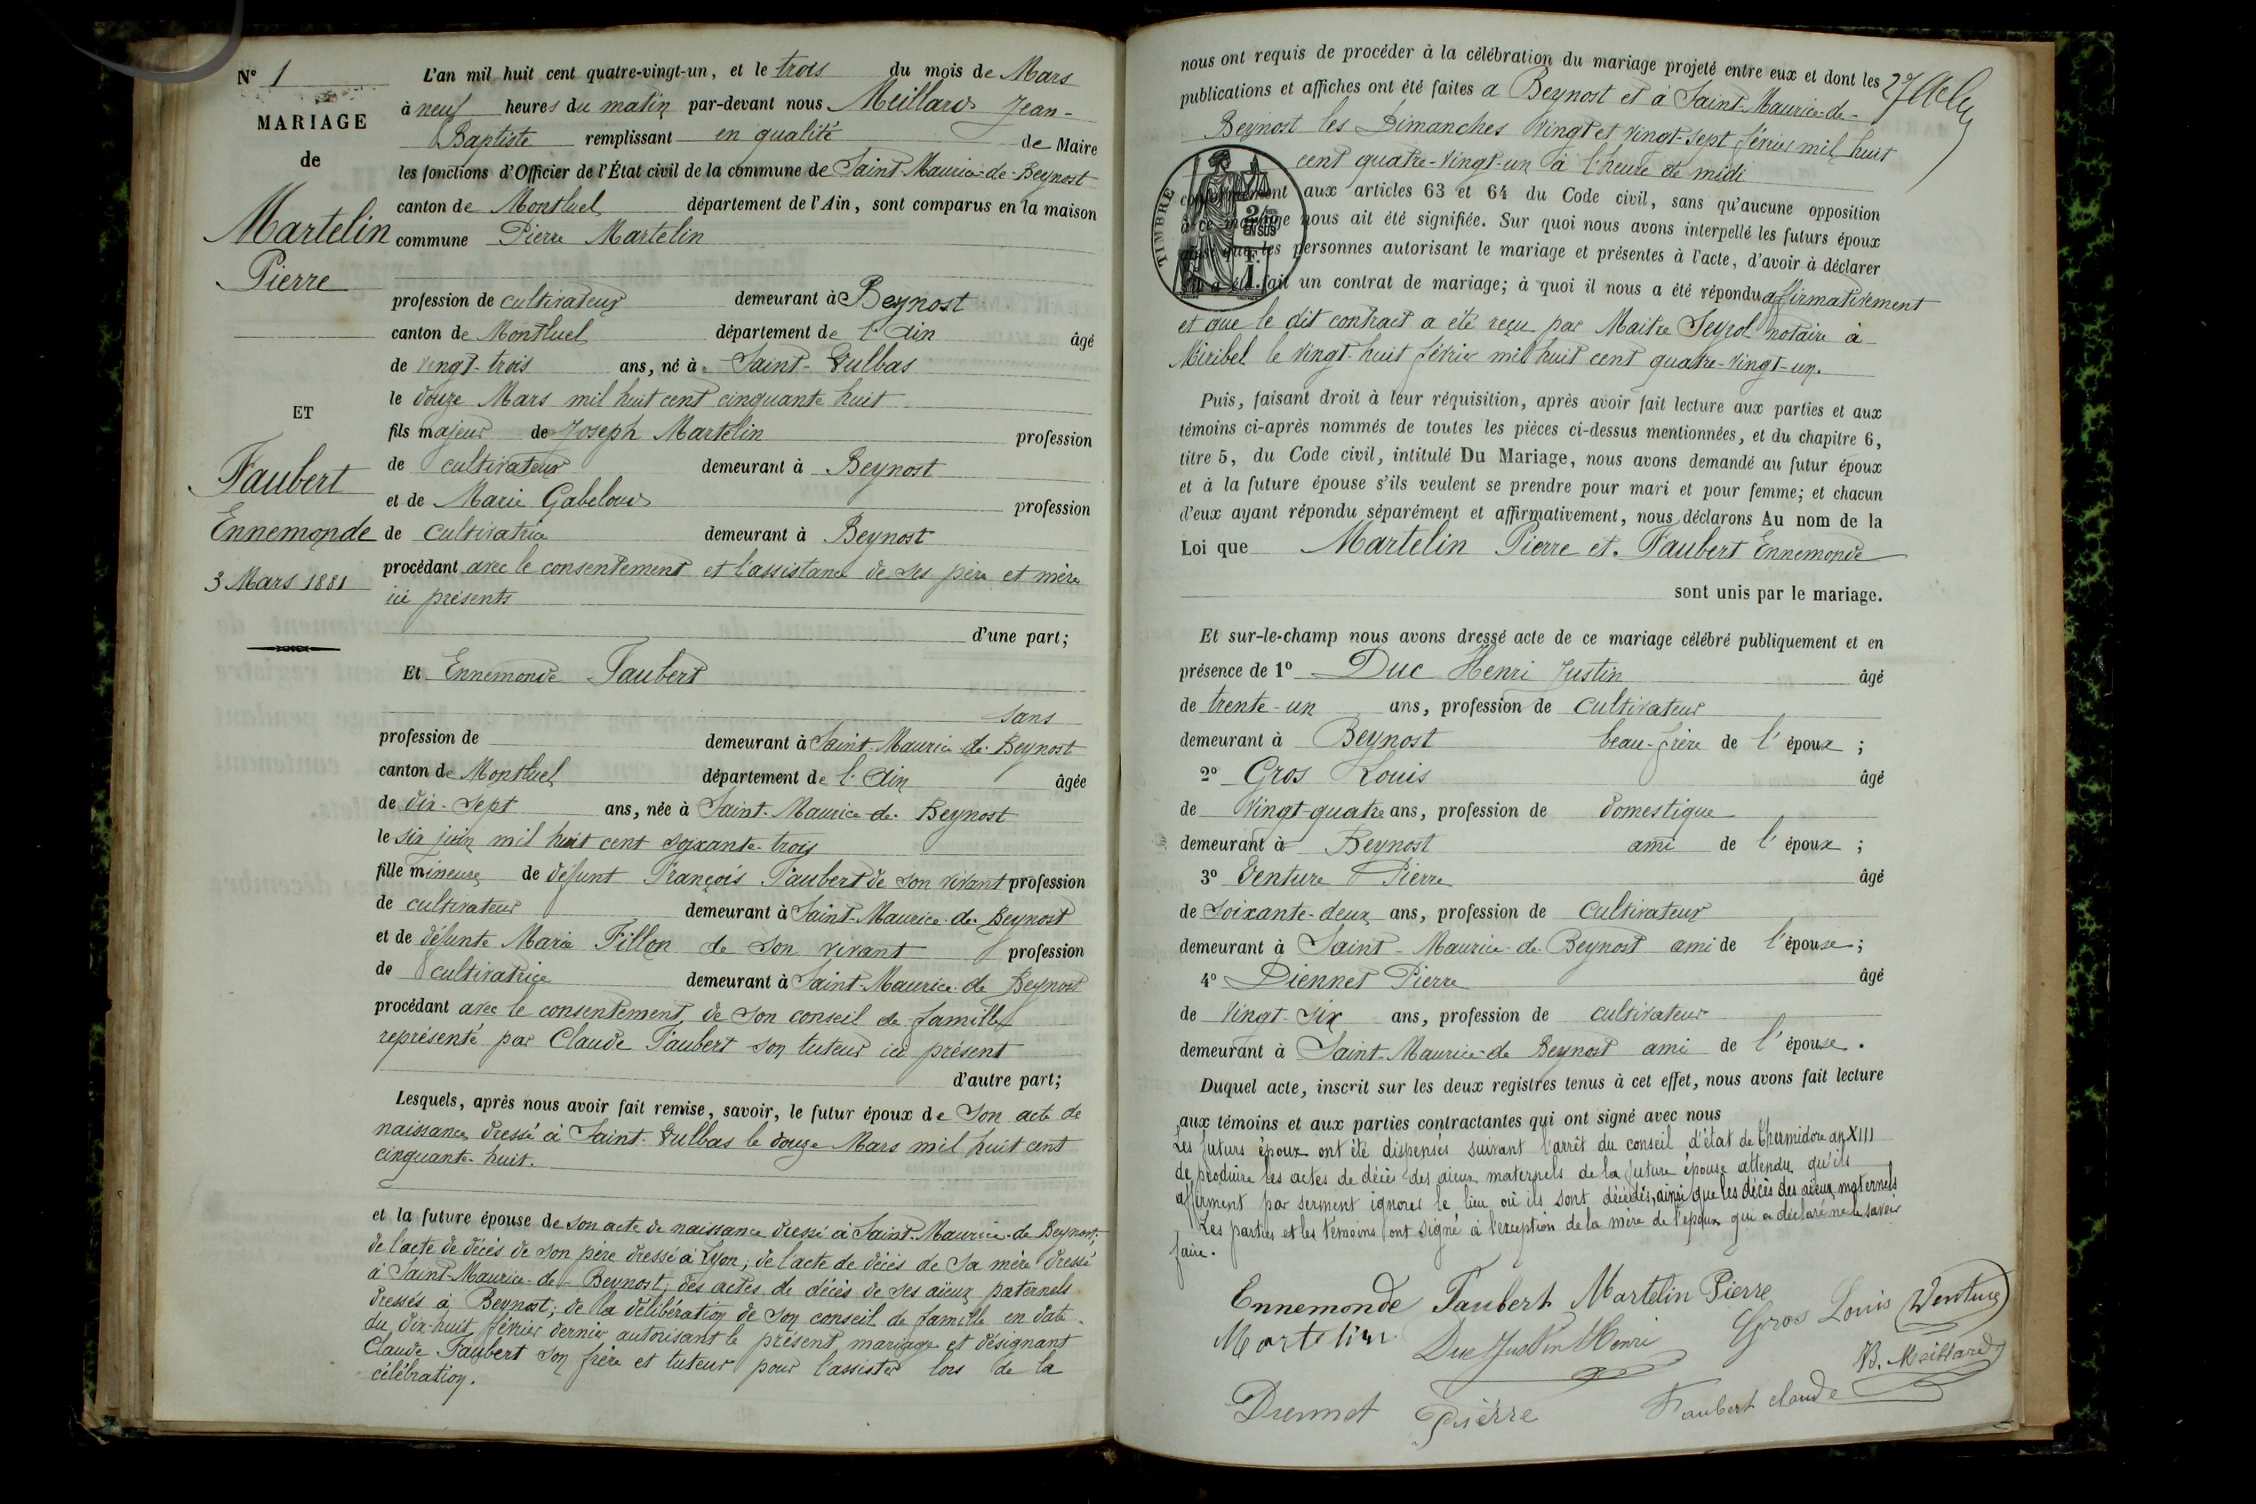 N° 1
MARIAGE
de
Martelin
Pierre
ET
Faubert
Ennemonde
3 Mars 1881
L'an mil huit cent quatre-vingt-un, et le trois du mois de Mars
à neuf heures du matin par-devant nous Meillard Jean-
Baptiste remplissant en qualité de Maire
les fonctions d'Officier de l'État civil de la commune de Saint-Maurice-de-Beynost
canton de Montluel département de l'Ain, sont comparus en la maison
commune Pierre Martelin
profession de cultivateur demeurant à Beynost
canton de Montluel département de l'Ain âgé
de vingt-trois ans, né à Saint-Vulbas
le douze Mars mil huit cent cinquante huit
fils majeur de Joseph Martelin profession
de cultivateur demeurant à Beynost
et de Marie Gabeloud profession
de cultivatrice demeurant à Beynost
procédant avec le consentement et l'assistance de ses père et mère
ici présents
d'une part;
Et Ennemonde Faubert
sans
profession de demeurant à Saint-Maurice-de-Beynost
canton de Montluel département de l'Ain âgée
de dix-sept ans, née à Saint-Maurice-de-Beynost
le six juin mil huit cent soixante-trois
fille mineure de défunt François Faubert de son vivant profession
de cultivateur demeurant à Saint-Maurice-de-Beynost
et de défunte Marie Fillon de son vivant profession
de cultivatrice demeurant à Saint-Maurice-de Beynost
procédant avec le consentement de son conseil de famille
représenté par Claude Faubert son tuteur ici présent
d'autre part;
Lesquels, après nous avoir fait remise, savoir, le futur époux de son acte de
naissance dressé à Saint-Vulbas le douze Mars mil huit cent
cinquante-huit.
et la future épouse de son acte de naissance dressé à Saint-Maurice-de Beynost;
de l'acte de décès de son père dressé à Lyon; de l'acte de décès de sa mère dressé
à Saint-Maurice-de-Beynost; des actes de décès de ses aïeux paternels
dressés à Beynost; de la délibération de son conseil de famille en date
du dix-huit février dernier autorisant le présent mariage et désignant
Claude Faubert son frère et tuteur pour l'assister lors de la
célébration.
nous ont requis de procéder à la célébration du mariage projeté entre eux et dont les
publications et affiches ont été faites à Beynost et à Saint-Maurice-de-
Beynost les Dimanches vingt et vingt-sept février mil huit
cent quatre-vingt-un à l'heure de midi
conformément aux articles 63 et 64 du Code civil, sans qu'aucune opposition
à ce mariage nous ait été signifiée. Sur quoi nous avons interpellé les futurs époux
ainsi que les personnes autorisant le mariage et présentes à l'acte, d'avoir à déclarer
s'il a été fait un contrat de mariage; à quoi il nous a été répondu affirmativement
et que le dit contract a été reçu par Maitre Seyrol notaire à
Miribel le vingt-huit février mil huit cent quatre-vingt-un.
TIMBRE
Puis, faisant droit à leur réquisition, après avoir fait lecture aux parties et aux
témoins ci-après nommés de toutes les pièces ci-dessus mentionnées, et du chapitre 6,
titre 5, du Code civil, intitulé Du Mariage, nous avons demandé au futur époux
et à la future épouse s'ils veulent se prendre pour mari et pour femme; et chacun
d'eux ayant répondu séparément et affirmativement, nous déclarons Au nom de la
Loi que Martelin Pierre et Faubert Ennemonde
sont unis par le mariage.
Et sur-le-champ nous avons dressé acte de ce mariage célébré publiquement et en
présence de 1° Duc Henri Justin âgé
de trente-un ans, profession de cultivateur
demeurant à Beynost beau-frère de l'époux;
2° Gros Louis âgé
de vingt-quatre ans, profession de domestique
demeurant à Beynost ami de l'époux;
3° Venture Pierre âgé
de soixante-deux ans, profession de cultivateur
demeurant à Saint-Maurice-de-Beynost ami de l'épouse;
4° Diennet Pierre âgé
de vingt-six ans, profession de cultivateur
demeurant à Saint-Maurice-de Beynost ami de l'épouse.
Duquel acte, inscrit sur les deux registres tenus à cet effet, nous avons fait lecture
aux témoins et aux parties contractantes qui ont signé avec nous
Les futurs époux ont été dispensés suivant l'arrêt du conseil d'état de thermidore an XIII
de produire les actes de décès des aïeux maternels de la future épouse attendu qu'ils
affirment par serment ignorer le lieu où ils sont décédés, ainsi que les décès des aïeux maternels
Les parties et les témoins ont signé à l'exception de la mère de l'époux qui a déclaré ne le savoir
faire.
Ennemonde Faubert Martelin Pierre
Gros Louis Venture
Martelin Duc Justin Henri
JB. Meillard
Diennet Pierre Faubert claude